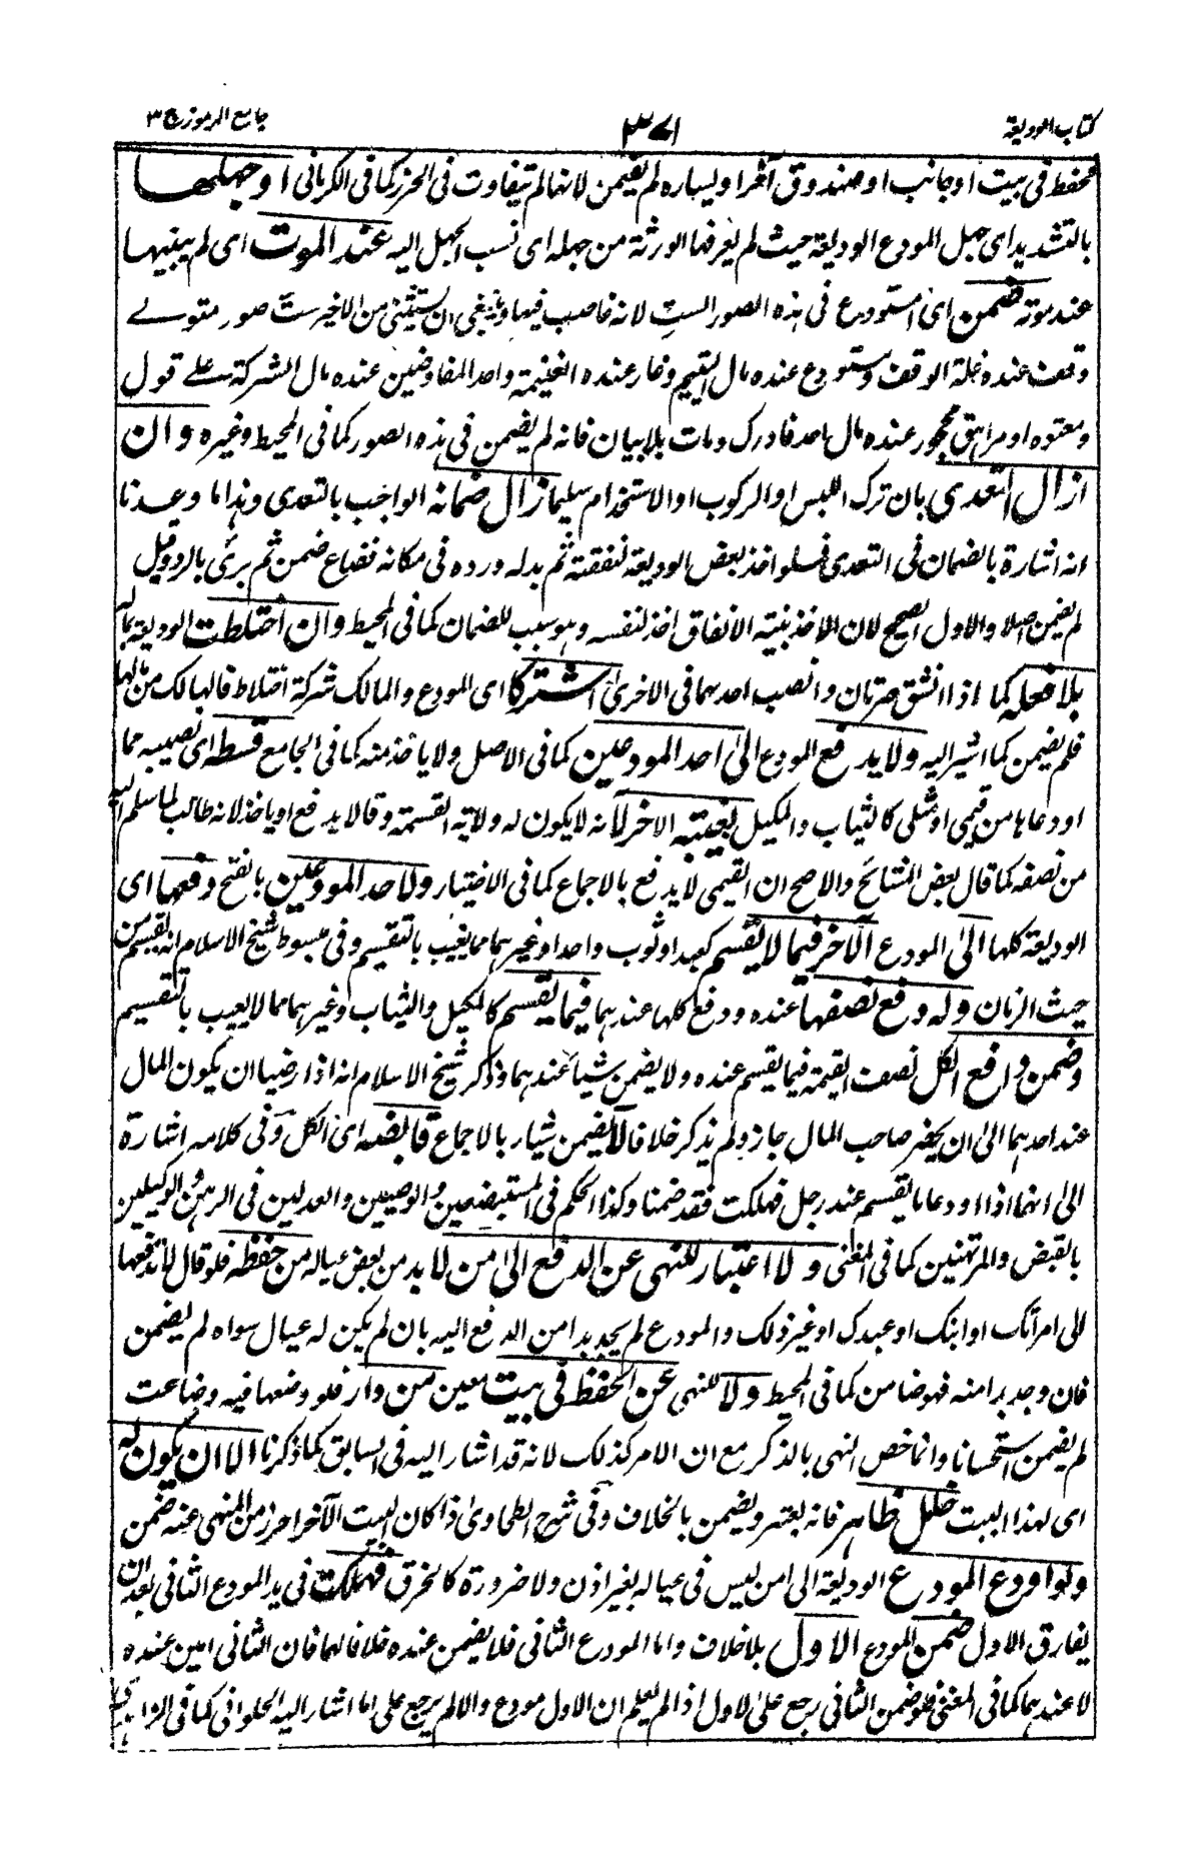 كتاب الوديعة
٣٧١
جامع الرموز ج ٣
فحفظ في بيت او جانب او صندوق آخر او يساره لم يضمن لانها لم تتفاوت في الحرز كما في الكرماني او جهلها
بالتشديد اى جهل المودع الوديعة حيث لم يعرفها الورثة من جهله اى نسب الجهل اليه عند الموت اى لم يبينها
عند موته ضمن اى المستودع في هذه الصور الست لانه غاصب فيها وينبغي ان يستثنى من الاخير ست صور متولے
وقف عنده غلة الوقف ومستودع عنده مال اليتيم وغاز عنده الغنيمة واحد المفاوضين عنده مال الشركة على قول
ومعتوه او مراهق محجور عنده مال احد فادرك ومات بلا بيان فانه لم يضمن في هذه الصور كما في المحيط وغيره وان
ازال التعدى بان ترك اللبس او الركوب او الاستخدام سليما زال ضمانه الواجب بالتعدى وهذا ما وعدنا
انه اشارة بالضمان في التعدى فسلو اخذ بعض الوديعة لنفقته ثم بدله ورده في مكانه فضاع ضمن ثم برئ بالرد وقيل
لم يضمن اصلا والاول الصحيح لان الاخذ بنية الانفاق اخذ لنفسه وهو سبب للضمان كما في المحيط وان اختلطت الوديعة بماله
بلا فعله كما اذا انشق صرتان وانصب احدهما في الاخرى اشتركا اى المودع والمالك شركة اختلاط فالهالك من مالهما
فلم يضمن كما اشير اليه ولا يدفع المودع الى احد المودعين كما في الاصل ولا ياخذ منه كما في الجامع قسطه اى نصيبه مما
اودعاها من قيمى او مثلى كالثياب والمكيل بغيبة الاخر لانه لا يكون له ولاية القسمة وقالا يدفع او ياخذ لانه طالب لما سلم اليه
من نصفه كما قال بعض المشائخ والاصح ان القيمى لا يدفع بالاجماع كما في الاختيار ولاحد المودعين بالفتح دفعها اى
الوديعة كلها الى المودع الآخر فيما لا يقسم كعبد او ثوب واحد او غيرهما مما يغيب بالتقسيم وفي مبسوط شيخ الاسلام انه يقسم من
حيث الزمان وله دفع نصفها عنده ودفع كلها عندهما فيما يقسم كالمكيل والثياب وغيرهما مما لا يعيب بالتقسيم
وضمن دافع الكل نصف القيمة فيما يقسم عنده ولا يضمن شيئا عندهما وذكر شيخ الاسلام انه اذا رضيا ان يكون المال
عند احدهما الى ان يحضر صاحب المال جاز ولم يذكر خلافا لا يضمن شيئا بالاجماع قابضه اى الكل وفي كلامه اشارة
الى انهما اذا اودعا ما يقسم عند رجل فهلكت فقد ضمنا وكذا الحكم في المستبضعين والوصيين والعدلين في الرهن والوكيلين
بالقبض والمرتهنين كما في المغنى ولا اعتبار للنهى عن الدفع الى من لا بد من بعض عياله من حفظه فلو قال لا تدفعها
الى امرأتك او ابنك او عبدك او غير ذلك والمودع لم يجد بدا من الدفع اليه بان لم يكن له عيال سواه لم يضمن
فان وجد بدا منه فهو ضامن كما في المحيط ولا للنهى عن الحفظ في بيت معين من دار فلو وضعها فيه وضاعت
لم يضمن استحسانا وانما خص النهى بالذكر مع ان الامر كذلك لانه قد اشار اليه في السابق كما ذكرنا الا ان يكون له
اى لهذا البيت خلل ظاهر فانه يعتبر ويضمن بالخلاف وفي شرح الطحاوى اذا كان البيت الآخر احرز من المنهى عنه ضمن
ولو اودع المودع الوديعة الى من ليس في عياله بغير اذن ولا ضرورة كالحرق فهلكت في يد المودع الثاني بعد ان
يفارق الاول ضمن المودع الاول بلا خلاف واما المودع الثاني فلا يضمن عنده خلافا لهما فان الثاني امين عنده
لا عندهما كما في المغنى فلو ضمن الثاني رجع على الاول اذا لم يعلم ان الاول مودع والا لم يرجع على ما اشار اليه الحلوانى كما في